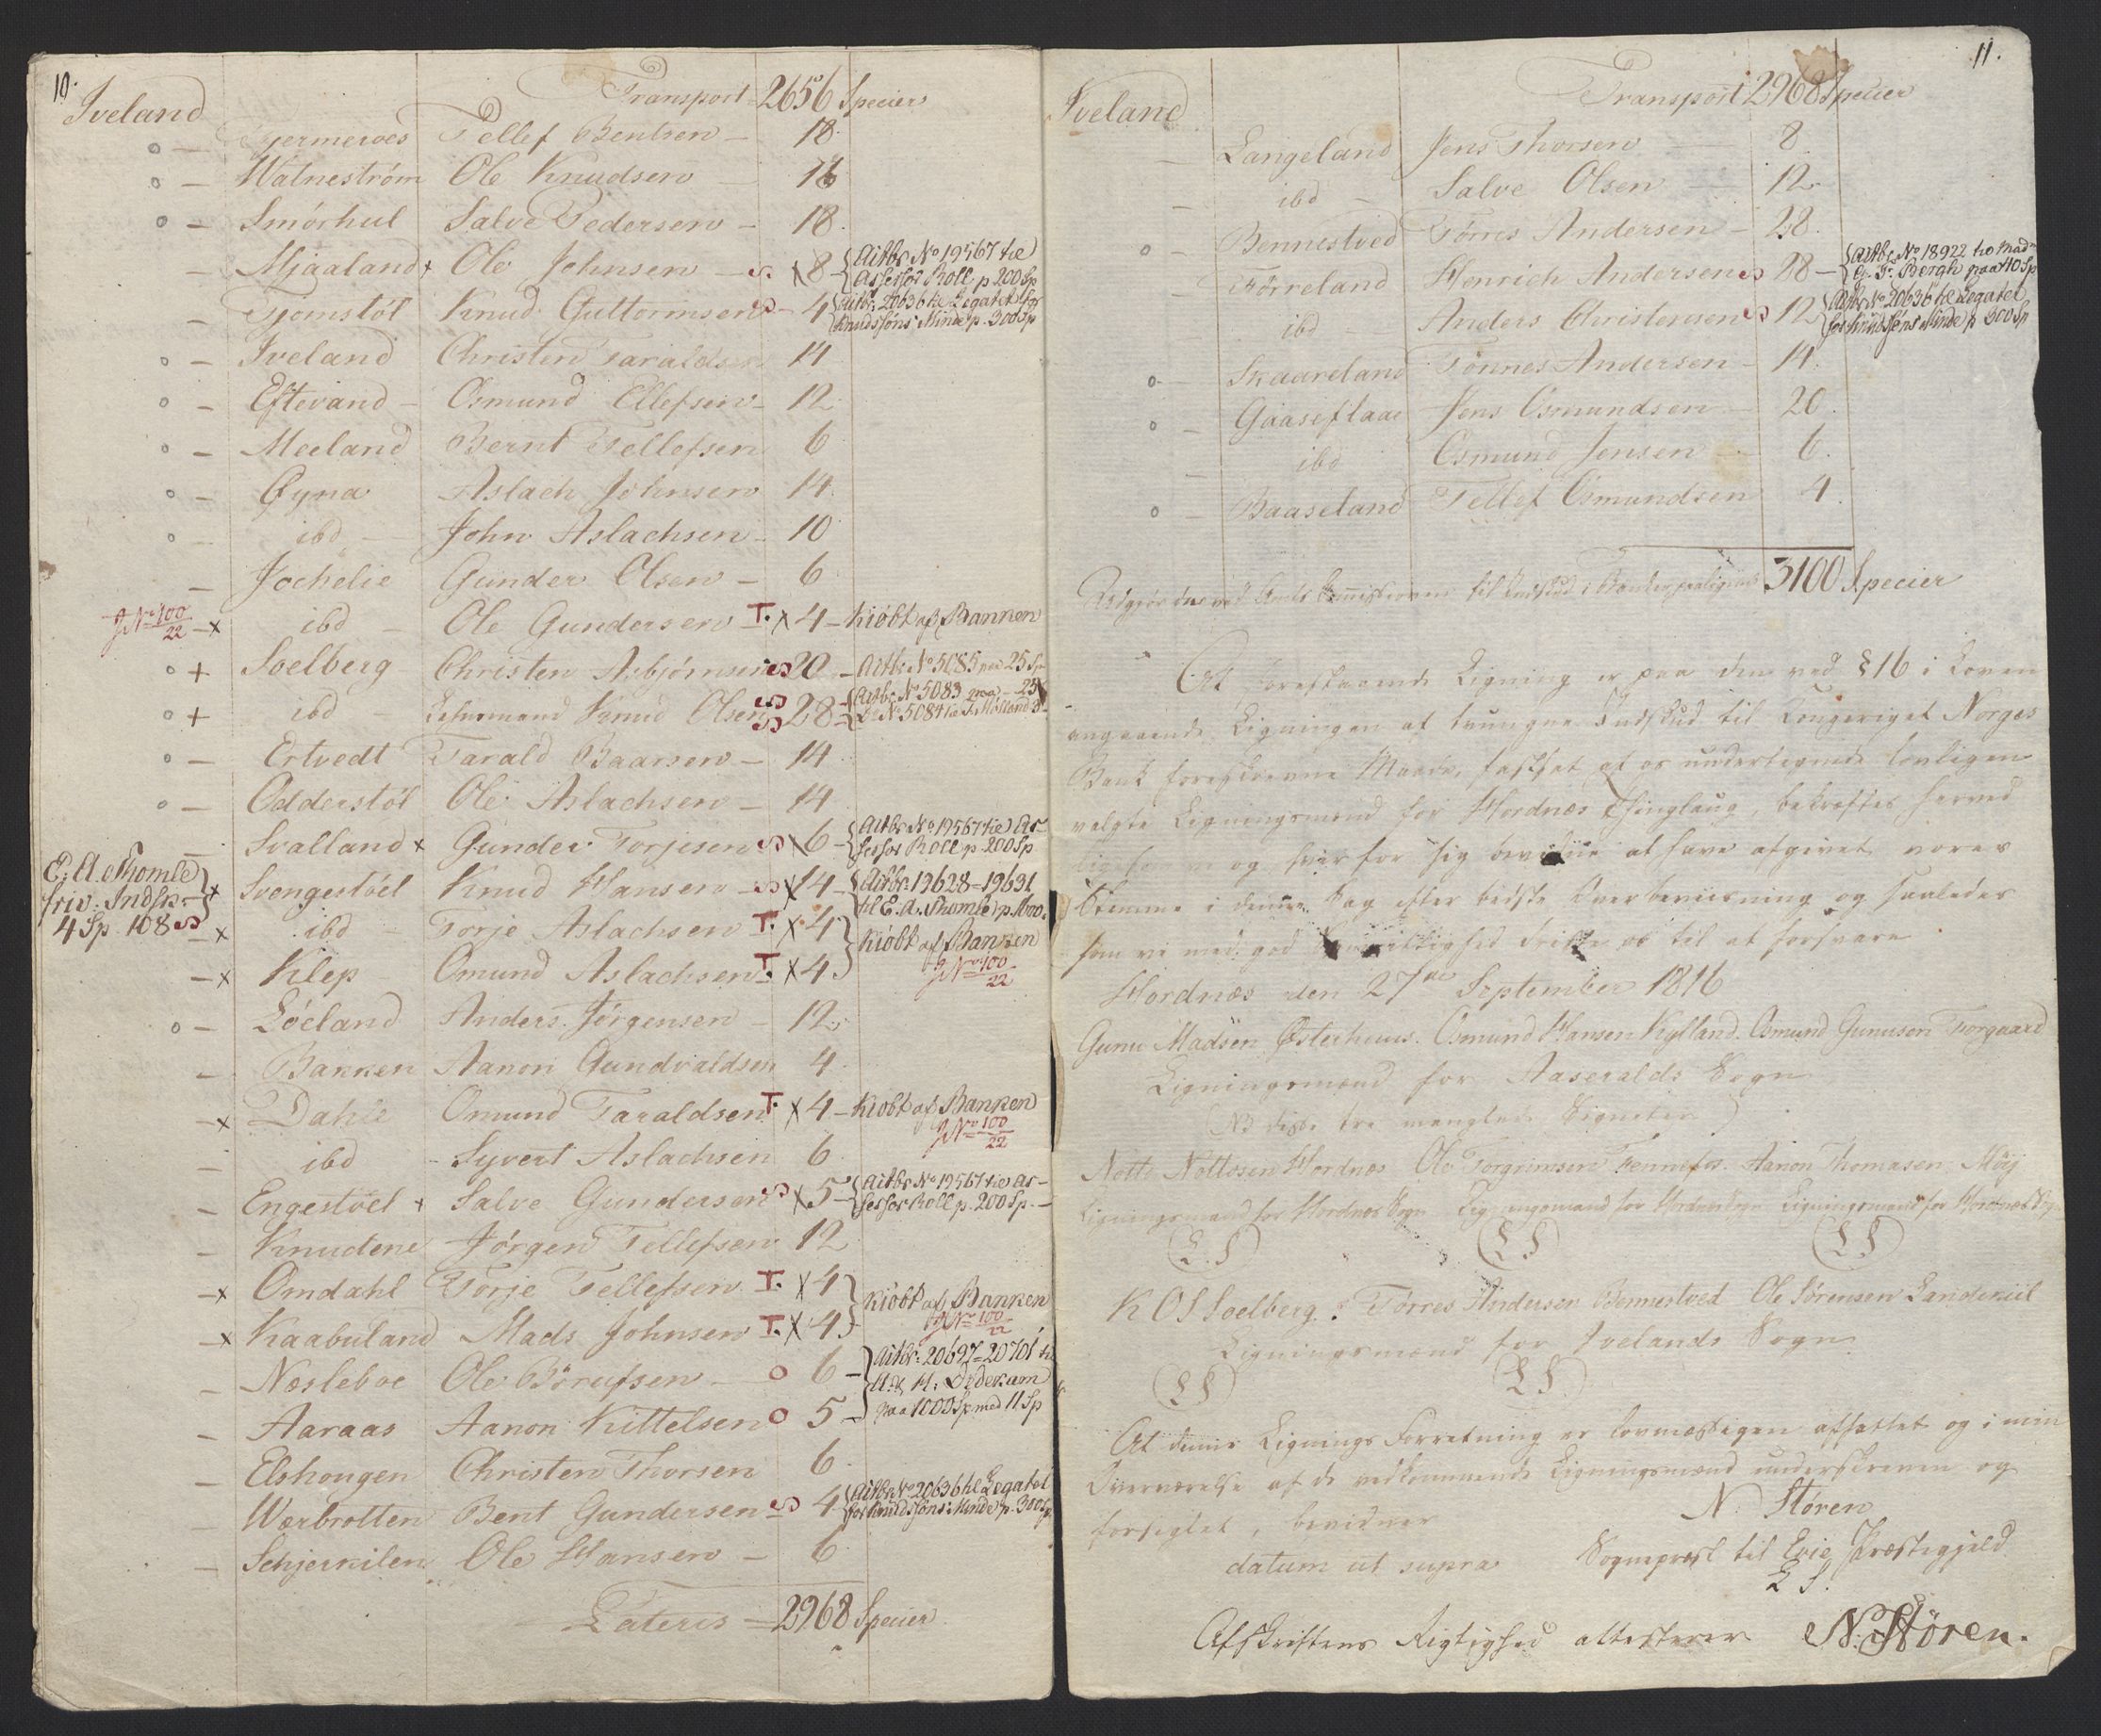 10.
Iveland
Transport - 2656 Specier
o — Gjermeroes Tellef Bentsen — 18.
o — Watneström Ole Knudsen — 16
o — Smörhul Salve Pedersen — 18.
— Mjaaland x Ole Johnsen — x 8 — { Actbr. No 19567 til
Assessor Roll p 200 Sp
— Tjomstöl Knud Guttormsen — 4 { Actbr. 20636 til Legatet for
Knudssöns Minde p. 300 Sp
o — Iveland Christen Taraldsen 14
o — Eftevand — Osmund Ellefsen — 12
o — Meeland Bernt Tellefsen 6
o — Öyna Aslach Johnsen 14.
o — ibd — John Aslachsen — 10
— Jochelie Gunder Olsen — 6
J No 100/22 — x ibd — Ole Gundersen T. x 4 — Kiöbt af Banken
o + Soelberg Christen Asbjörnsen 20 — Actbr. No 5085 paa 25 Sp
o + ibd — Lehnsmand Knud Olsen 28 — { Actbr. No 5083 paa — 25
Do No 5084 til T. Mölland 3 —
o — Ertvedt Tarald Baarsen — 14
o — Odderstöl Ole Aslachsen — 14
— Svalland x Gunder Torjesen x 6 — { Actbr No 19567 til As-
sessor Roll p. 200 Sp
E. A. Thomle
friv. Indsk. —
4 Sp. 108
x Svengestöel Knud Hansen — x 14 — { Actbr. 13628 = 13631
til E. A. Thomle p.
— x ibd — Torje Aslachsen T. x 4
Kiöbt af Banken
— x Klep Omund Aslachsen T. x 4
J No 100/22
o — Löeland Anders Jörgensen — 12
— Bakken Aanon Gundvaldsen 4
— x Dahle Omund Taraldsen T. x 4 — Kiöbt af Banken
J No 100/22
— ibd — Syvert Aslachsen 6
— Engestöel x Salve Gundersen x 5 — { Actbr No 19567 til As-
sessor Roll p. 200 Sp. —
— Knudene Jörgen Tellefsen 12
— x Omdahl Torje Tellefsen T. x 4
Kiöbt af Banken
— x Kaabuland Mads Johnsen T. x 4
J No 100/22
— Næsleboe Ole Börufsen — o 6 — } Actbr. 20697 = 20701 til
H. Dedekam
— Aaraas Aanon Kittelsen o 5 — paa 1000 Sp med 11 Sp
— Elshougen Christen Thorsen 6
— Wærbrotten Bent Gundersen 4 { Actbr No 20636 til Legatet
for Knudssöns Minde p. 300 Sp
— Schjerkilen Ole Hansen — 6
Lateris = 2968 Specier
11.
Iveland
Transport 2968 Specier
— Langeland Jens Thorsen — 8
— ibd — Salve Olsen — 12
o — Bennestved Törres Andersen — 28.
— Förreland Henrich Andersen 88 — { Actbr. No 18922 til Mad.
Bergh paa 40 Sp
— ibd — Anders Christensen 12 { Actbr No 20636 til Legatet
for Knudssöns Minde p 300 Sp
o — Skaareland Tönnes Andersen — 14.
o — Gaaseflaae Jens Osmundsen — 20.
— ibd Osmund Jensen — 6.
o — Baaseland Tellef Osmundsen 4.
Udgjör den ved Amts Commissionen til Indskud i Banken paalignede 3100 Specier
At forestaaende Ligning er paa den ved § 16 i Loven
angaaende Ligningen af tvungne Indskud til Kongeriget Norges
Bank foreskrevne Maade, fastsat af os undertegnede lovligen
valgte Ligningsmænd for Hordnæs Thinglaug, bekræftes herved
og hver for sig at have afgivet vores
Stemme i denne Sag efter bedste Overbeviisning og saaledes
som vi med god Samvittighed tröste os til at forsvare.
Hordnæs den 27de September 1816
Gunu Madsen Österhuus. Osmund Hansen Kylland. Osmund Gunuson Torgaard
Ligningsmænd for Aaseralds Sogn
(NB disse tre manglede Signeter)
Notte Nottosen Hordnæs Ole Torgrimsen Fennefos. Aanon Thomasen Möij
Ligningsmand for Hordnæs Sogn Ligningsmand for Hordnæs Sogn Ligningsmand for Hordnæs Sogn
(L.S) (L S) (L S)
K O S Soelberg. Törres Andersen Bennestved Ole Sörensen Landekiil
Ligningsmænd for Ivelands Sogn
(L S) (L S.)
At denne Lignings Forretning er lovmæssigen affattet og i min
Overværelse af de vedkommende Ligningsmænd underskreven og
forseglet, bevidner
N. Stören
datum ut supra Sognepræst til Evie Præstegjeld
L S.
Afskriftens Rigtighed attesterer N. Stören.